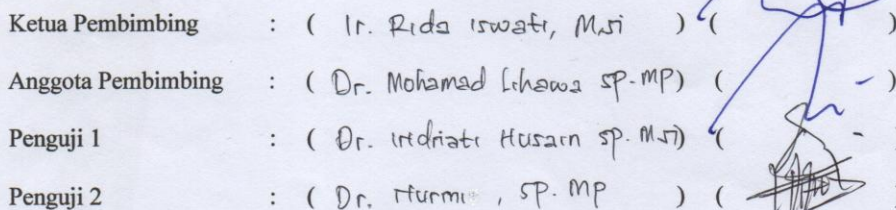 Ketua Pembimbing : ( Ir. Rida Iswati, M.si ) ( )
Anggota Pembimbing : ( Dr. Mohamad Lihawa SP. MP) ( )
Penguji 1 : ( Dr. Indriati Husain SP. M.si) (
Penguji 2 : ( Dr. Nurmi , SP. MP ) (